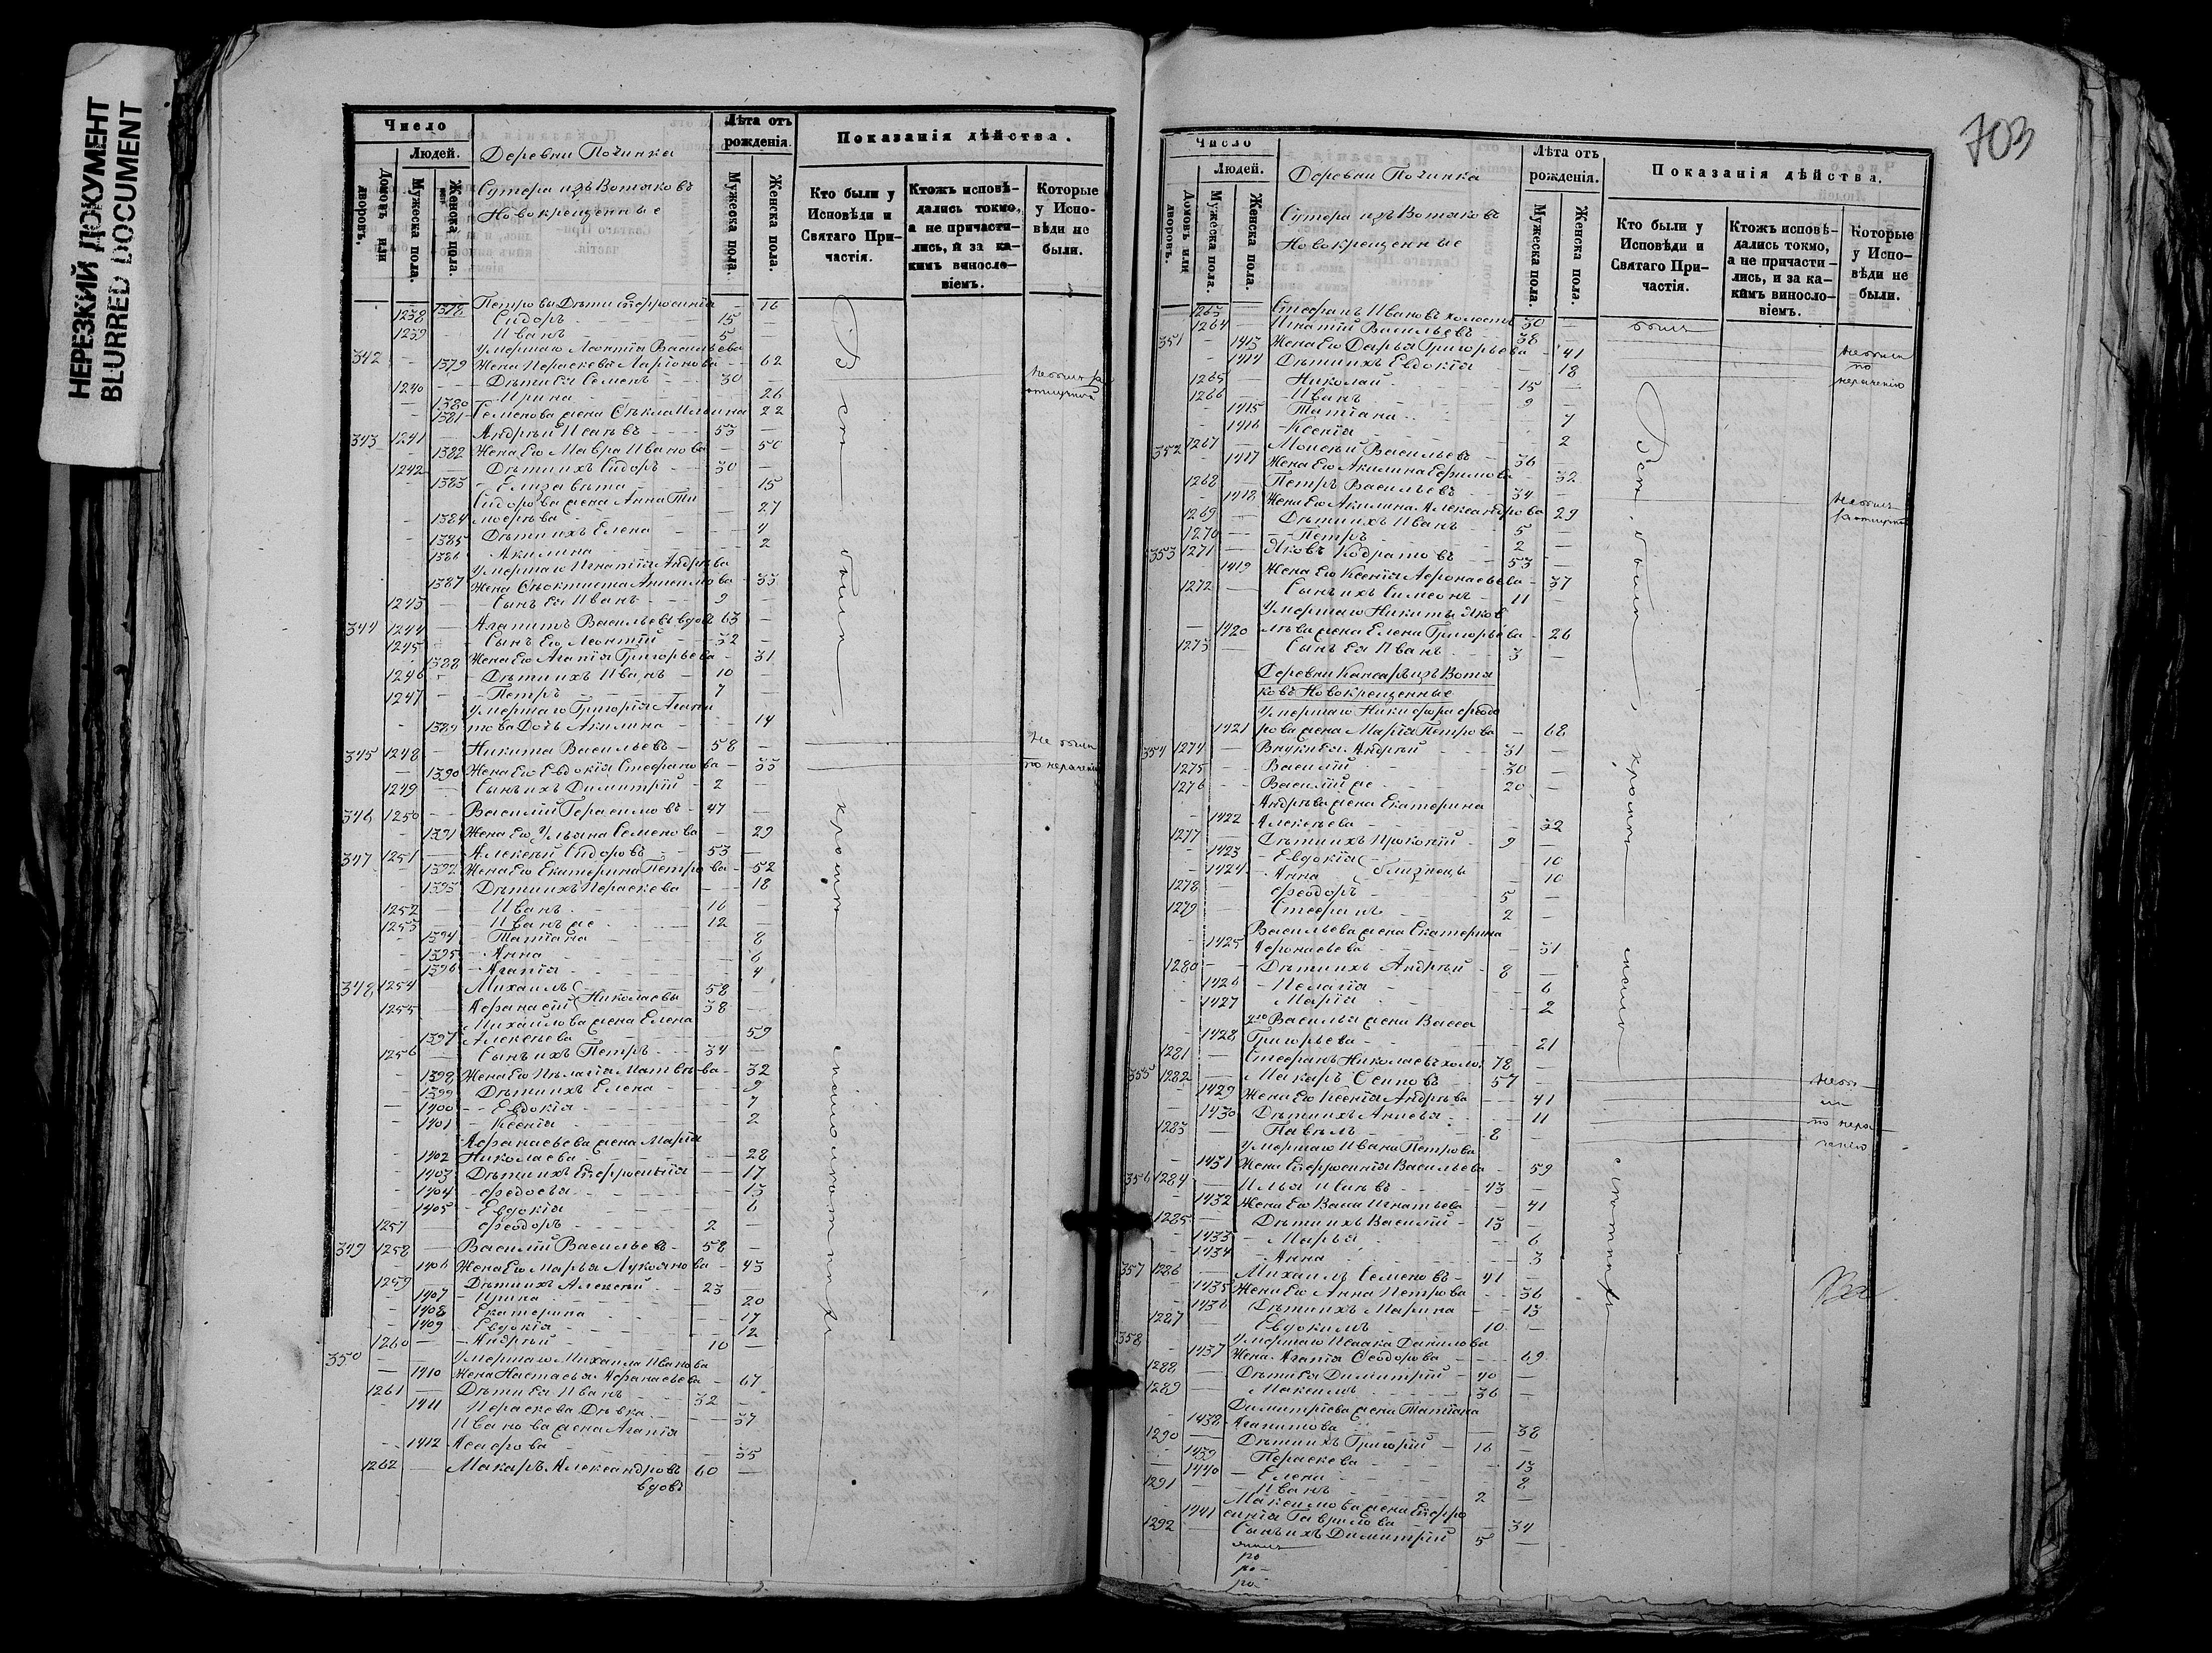 НЕРЕЗКИЙ ДОКУМЕНТ
BLURRED DOCUMENT
Число
Людей.
Домовъ или дворовъ.
Мужеска пола.
Женска пола.
Деревни Починка
Сутера изъ Вотяковъ
Новокрещенные
Лѣта отъ рожденія.
Мужеска пола.
Женска пола.
Показанія дѣйства.
Кто были у Исповѣди и Святаго Причастія.
Ктожъ исповѣдались токмо, а не причастились, и за какимъ винословіемъ.
Которые у Исповѣди не были.
1378 Петровы Дѣти Евфросинія 16
1238 Сидоръ 15
1239 Иванъ 5
Умершаго Леонтія Васильева
342 1379 Жена Параскева Ларіонова 62
1240 Дѣти ея Семенъ 30
1380 Ирина 26
1381 Семенова жена Ѳекла Ильина 22
343 1241 Андрей Исаевъ 53
1382 Жена его Мавра Иванова 50
1242 Дѣти ихъ Сидоръ 30
1383 Елизавета 15
Сидорова жена Анна Ти
1384 моѳеева 27
1385 Дѣти ихъ Елена 4
1386 Акилина 2
Умершаго Игнатія Андреева
1387 Жена Ѳеоктиста 33
1243 Сынъ ея Иванъ 9
344 1244 Агапитъ Васильевъ вдовъ 63
1245 Сынъ его Леонтій 32
1388 Жена его Агапія Григорьева 31
1246 Дѣти ихъ Иванъ 10
1247 Петръ 7
Умершаго Григорія Агапи
1389 това Дочь Акилина 14
345 1248 Никита Васильевъ 58 не были
1390 Жена его Евдокія Стефанова 33 по нераченію
1249 Сынъ ихъ Димитрій 2
346 1250 Василій Герасимовъ 47
1391 Жена его Ульяна Семенова 29
347 1251 Алексѣй Сидоровъ 53
1392 Жена его Екатерина Петрова 52
1393 Дѣти ихъ Параскева 18
1252 Иванъ 16
1253 Иванъ же 12
1394 Татіана 8
1395 Анна 6
1396 Агапія 4
348 1254 Михаилъ 58
1255 Афанасій Николаевы 38
Михайлова жена Елена
1397 Алексѣева 59
1256 Сынъ ихъ Петръ 34
1398 Жена его Пелагія Матвѣева 32
1399 Дѣти ихъ Елена 9
1400 Евдокія 7
1401 Ксенія 2
Афанасьева жена Марія
1402 Николаева 28
1403 Дѣти ихъ Евфросинія 17
1404 Федосья 13
1405 Евдокія 6
1257 Феодоръ 2
349 1258 Василій Васильевъ 58
1406 Жена его Марья Лукоянова 43
1259 Дѣти ихъ Алексѣй 23
1407 Ирина 20
1408 Екатерина 17
1409 Евдокія 12
1260 Андрей 10
350 Умершаго Михаила Иванова
1410 Жена Настасья Афанасьева 67
1261 Дѣти ея Иванъ 32
1411 Параскева Дѣвка 37
Иванова жена Агапія
1412 35
1262 Макаръ Александровъ 60
вдовъ
Всѣ были, кромѣ
703
Число
Людей.
Домовъ или дворовъ.
Мужеска пола.
Женска пола.
Деревни Починка
Сутера изъ Вотяковъ
Новокрещенные
Лѣта отъ рожденія.
Мужеска пола.
Женска пола.
Показанія дѣйства.
Кто были у Исповѣди и Святаго Причастія.
Ктожъ исповѣдались токмо, а не причастились, и за какимъ винословіемъ.
Которые у Исповѣди не были.
1263 Стефанъ Ивановъ холостъ 30 былъ
351 1264 Игнатій Васильевъ 38
1413 Жена его Дарья Григорьева 41 не были
1414 Дѣти ихъ Евдокія 18 по
1265 Николай 15 нераченію
1266 Иванъ 9
1415 Татіана 7
1416 Ксенія 2
352 1267 Моисей Васильевъ 36
1417 Жена его Акилина Ефимова 32
1268 Петръ Васильевъ 34
1418 Жена его Акилина Александрова 29
1269 Дѣти ихъ Иванъ 5
1270 Петръ 2
353 1271 Яковъ Кодратовъ 53
1419 Жена его Ксенія Афонасьева 37
1272 Сынъ ихъ Симеонъ 11
Умершаго Никиты Яков
1420 лева жена Елена Григорьева 26
1273 Сынъ ея Иванъ 3
Деревни Кансаръ изъ Вотя
ковъ Новокрещенные
Умершаго Никифора Феодо
1421 рова жена Марія Петрова 68
354 1274 Внуки ея Андрей 31
1275 Василій 30
1276 Василій же 20
Андреева жена Екатерина
1422 Алексѣева 32
1277 Дѣти ихъ Прокопій 9
1423 Евдокія 10
1424 Анна близнецы 10
1278 Феодоръ 5
1279 Стефанъ 2
Васильева жена Екатерина
1425 Афонасьева 31
1280 Дѣти ихъ Андрей 8
1426 Пелагія 6
1427 Марія 2
2го Василья жена Васса
1428 Григорьева 21
1281 Стефанъ Николаевъ холо. 78
355 1282 Макаръ Осиповъ 57
1429 Жена его Ксенія Андреева 41
1430 Дѣти ихъ Анисья 11 по нера
1283 Павелъ 8 ченію
Умершаго Ивана Петрова
1431 Жена Евфросинія Васильева 59
356 1284 Илья Исаевъ 43
1432 Жена его Васса Игнатьева 41
1285 Дѣти ихъ Василій 13
1433 Марья 6
1434 Анна 3
357 1286 Михаилъ Семеновъ 41
1435 Жена его Анна Петрова 36
1436 Дѣти ихъ Марина 13
1287 Евдокимъ 10
358 Умершаго Исаака Данилова
1437 Жена Агапія Ѳеодорова 69
1288 Дѣти ея Димитрій 40
1289 Максимъ 36
Димитріева жена Татіана
1438 Агапитова 38
1290 Дѣти ихъ Григорій 16
1439 Параскева 13
1440 Елена 8
1291 Иванъ 2
Максимова жена Евфро
1441 синія Гаврилова 34
1292 Сынъ ихъ Димитрій 5
Всѣ были, кромѣ